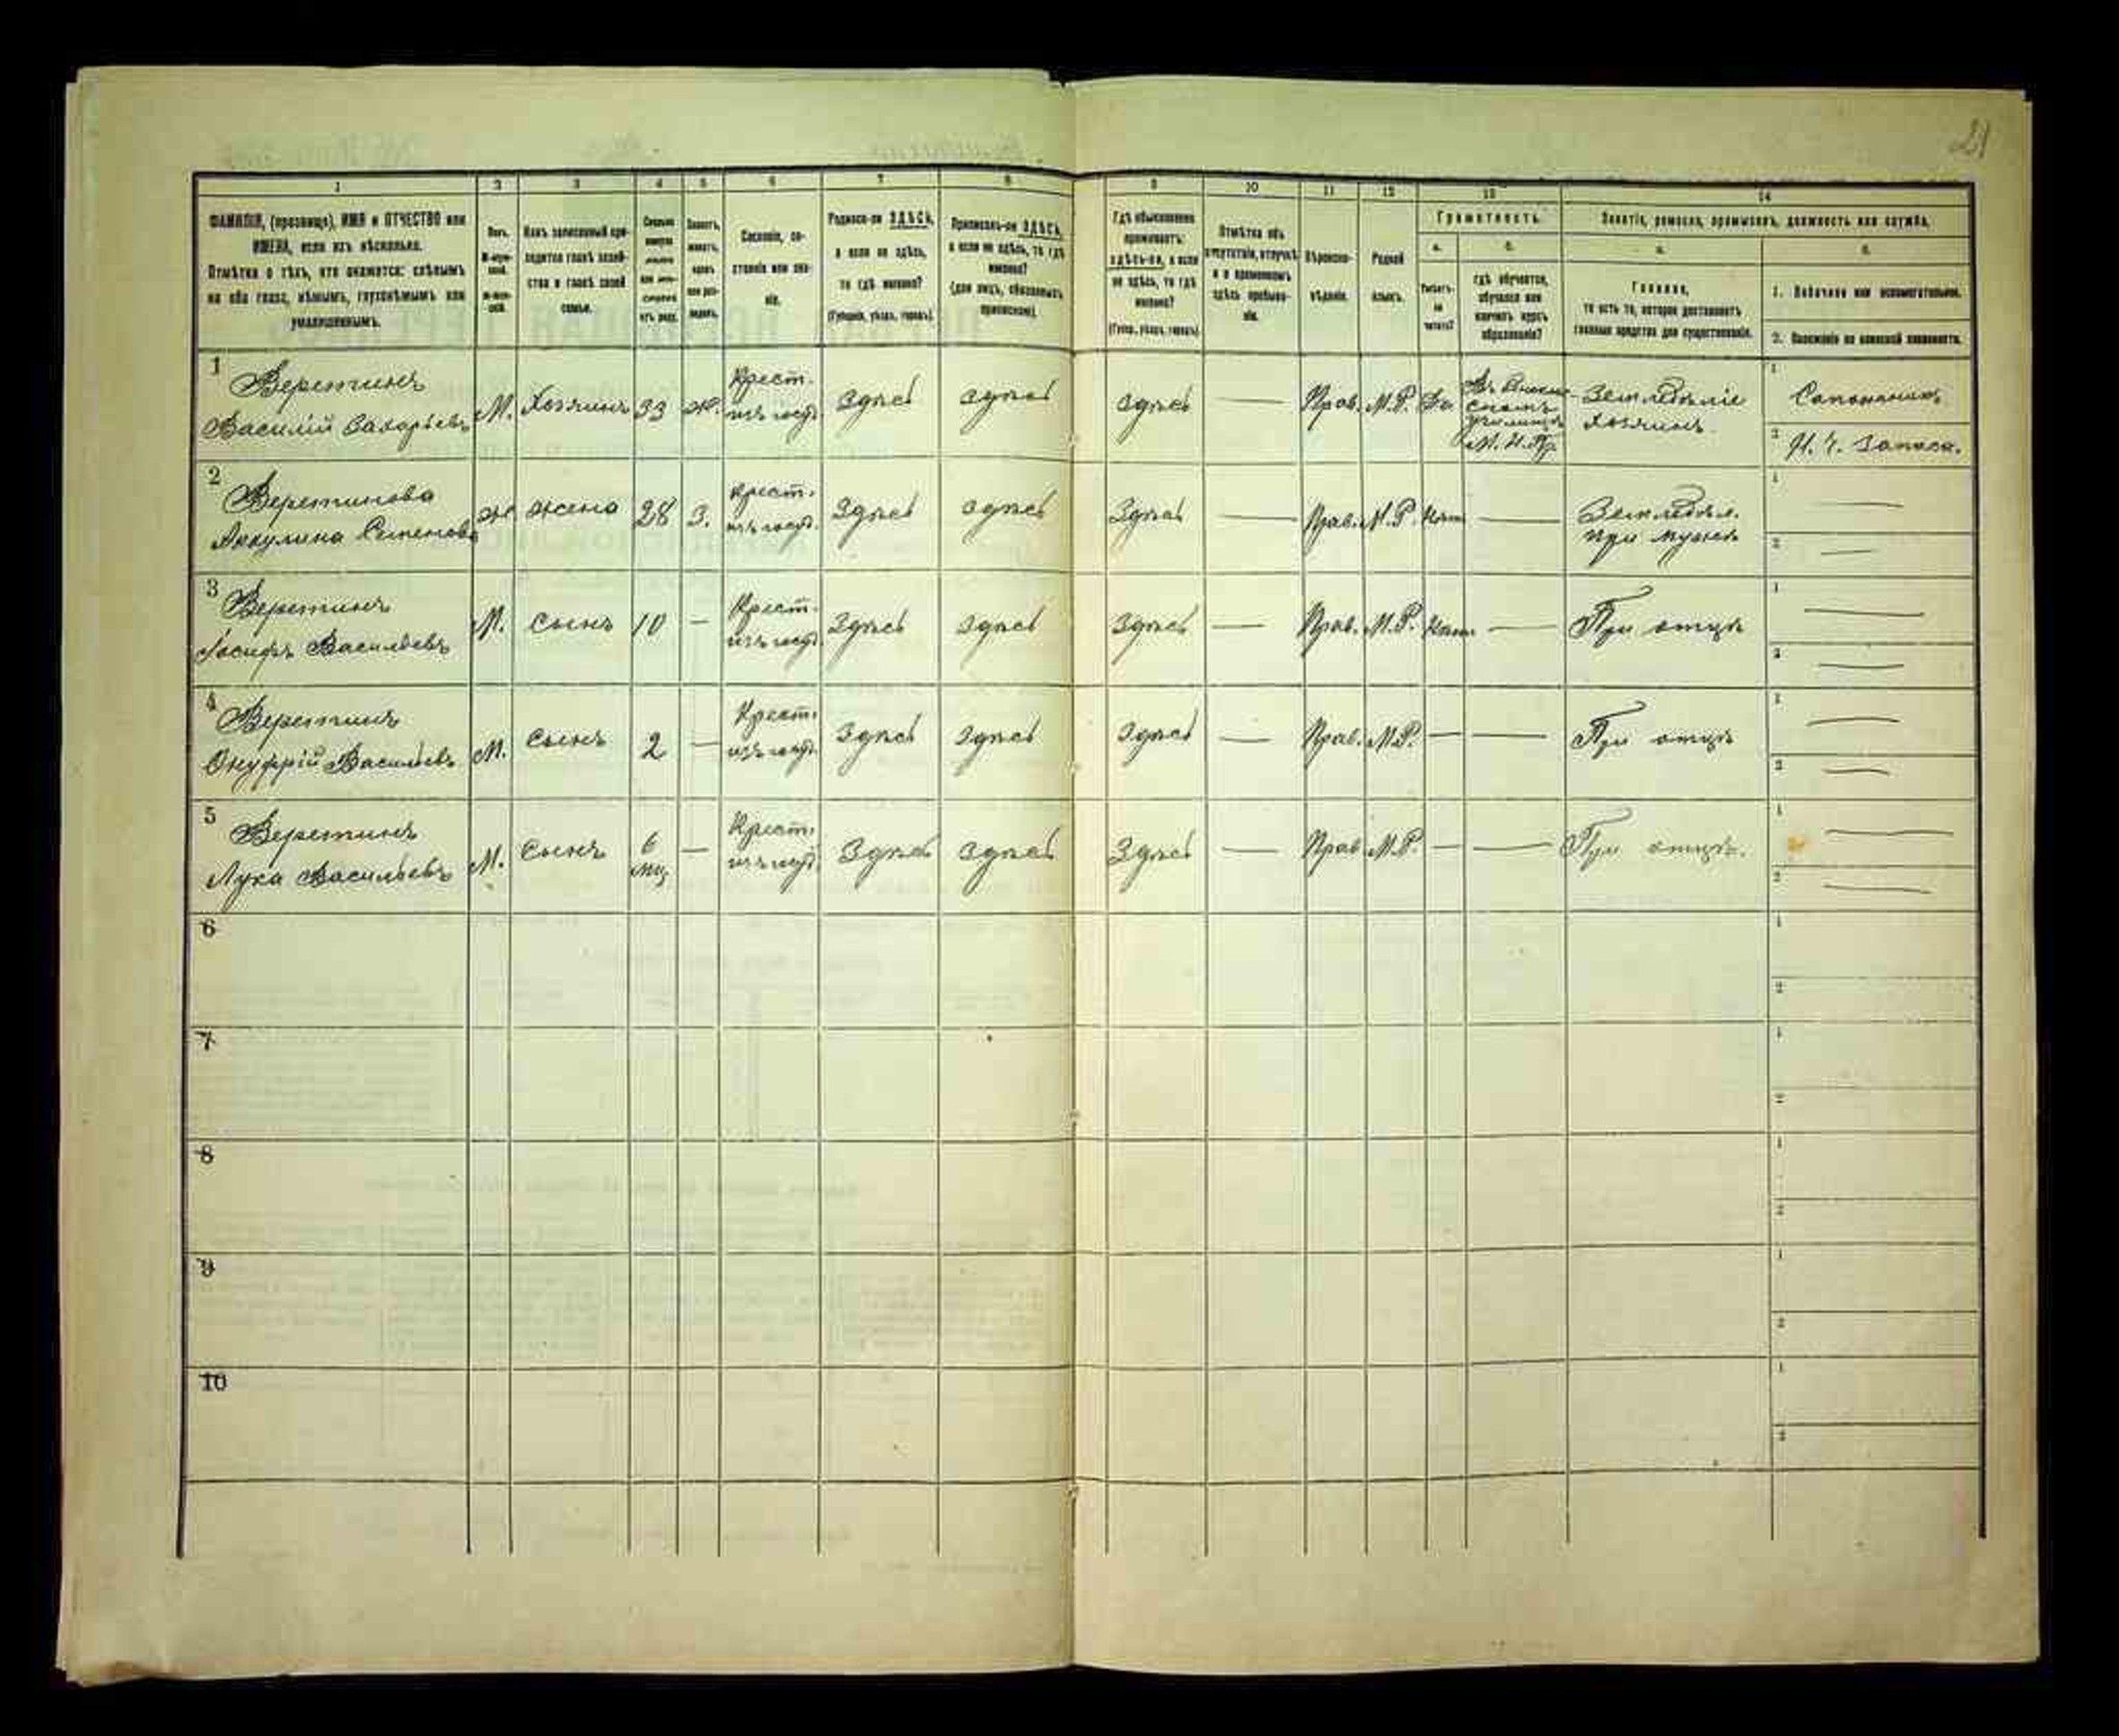 21
1 2 3 4 5 6 7 8 9 10 11 12 13 14
ФАМИЛІЯ, (прозвище), ИМЯ и ОТЧЕСТВО или
ИМЕНА, если ихъ нѣсколько.
Отмѣтка о тѣхъ, кто окажется: слѣпымъ
на оба глаза, нѣмымъ, глухонѣмымъ или
умалишеннымъ.
Полъ.
Какъ записанный при-
ходится главѣ хозяй-
ства и главѣ своей
семьи.
Сословіе, со-
стояніе или зва-
ніе.
Родился-ли ЗДѢСЬ,
а если не здѣсь,
то гдѣ именно?
(Губернія, уѣздъ, городъ).
Приписанъ-ли ЗДѢСЬ,
а если не здѣсь, то гдѣ
именно?
(для лицъ, обязанныхъ
припискою).
Гдѣ обыкновенно
проживаетъ:
здѣсь-ли, а если
не здѣсь, то гдѣ
именно?
(Губер., уѣздъ, городъ).
Отмѣтка объ
отсутствіи, отлучкѣ
и о временномъ
здѣсь пребыва-
ніи.
Вѣроиспо-
вѣданіе.
Родной
языкъ.
Грамотность.
а. б.
Умѣетъ-
ли
читать?
гдѣ обучается,
обучался или
кончилъ курсъ
образованія?
Занятіе, ремесло, промыселъ, должность или служба.
а. б.
Главное,
то есть то, которое доставляетъ
главныя средства для существованія.
1. Побочное или вспомогательное.
2. Положеніе по воинской повинности.
1
Веретинъ
Василій Захарьевъ
М. Хозяинъ 33 ж.
Крест.
изъ госуд.
Здѣсь здѣсь здѣсь — Прав. М.Р. Да
училищѣ
М. Н. Пр.
Земледѣліе
хозяинъ
1
Сапожникъ
2
Н. Ч. Запаса.
2
Веретинова
Аккулина Семенова
ж жена 28 З.
Крест.
изъ госуд.
Здѣсь здѣсь Здѣсь — Прав. М.Р. Нѣт —
Земледѣл.
при мужѣ
1 —
2 —
3
Веретинъ
Іосифъ Васильевъ
М. Сынъ 10 —
Крест.
изъ госуд.
Здѣсь Здѣсь Здѣсь — Прав. М.Р. Нѣт —
При отцѣ
1 —
2 —
4
Веретинъ
Онуфрій Васильевъ
М. Сынъ 2 —
Крест.
изъ госуд.
Здѣсь Здѣсь Здѣсь — Прав. М.Р. — —
При отцѣ
1 —
2 —
5
Веретинъ
Лука Васильевъ
М. Сынъ 6 мц —
Крест.
изъ госуд.
Здѣсь Здѣсь Здѣсь — Прав М.Р. — —
При отцѣ.
1 —
2 —
6
1
2
7
1
2
8
1
2
9
1
2
10
1
2